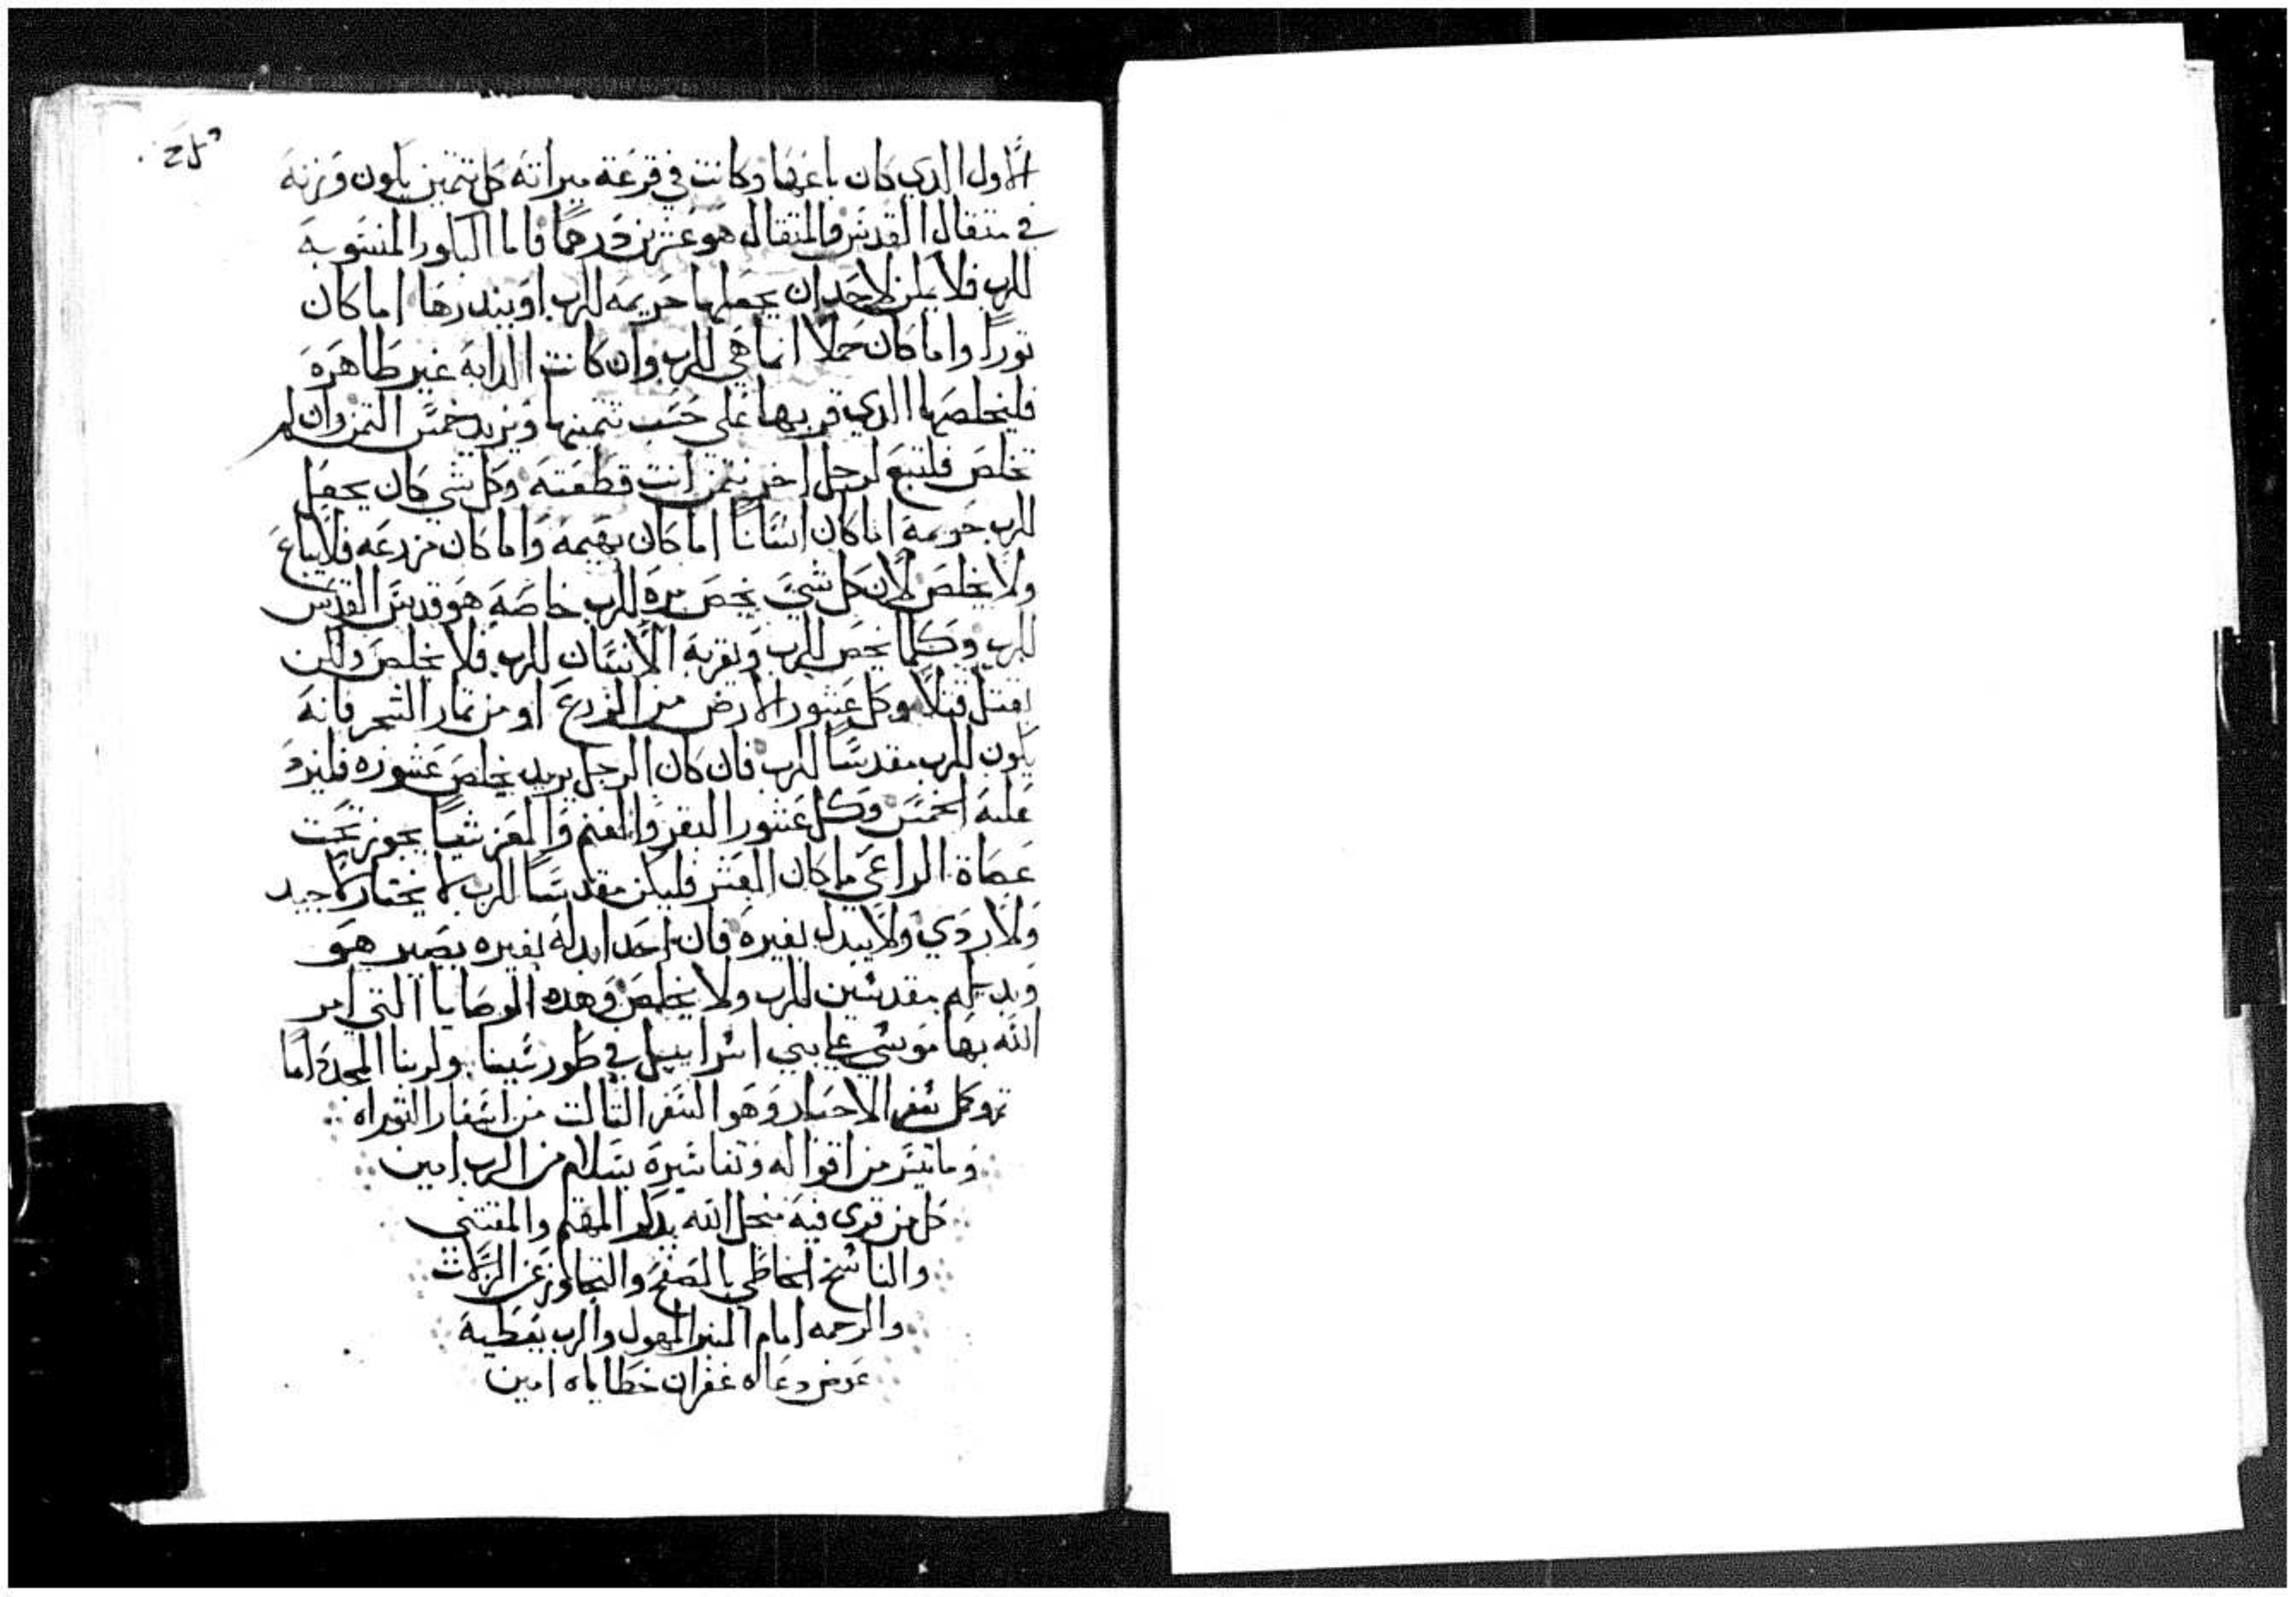 الاول الدي كان باعها وكانت في قرعة ميراته كل تتمين يكون وزنه
في متقال القدس والمتقال هو عشرين درهما فاما البكور المنسوبه
للرب فلا يمكن لاحد ان يجعلها حريمه للرب او يندرها اما كان
تورا واما كان حملا انما هي للرب وان كانت الدابه غير طاهره
فليخلصها الدي قربها علي حسب تتمينها ويزيد خمس التمن وان لم
تخلص فلتبع لرجل اخر بتمن انت قطعته وكل شي كان يجعل
للرب حريمه اما كان انسانا اما كان بهيمه واما كان مزرعه فلا يباع
ولا يخلص لان كل شي يخص بره للرب خاصه هو قدس القدس
للرب وكلما يخص للرب ويقربه الانسان للرب فلا يخلص ولكن
يقتل قتلا وكل عشور الارض من الزرع او من تمار الشجر فانه
يكون للرب مقدسا للرب فان كان الرجل يريد يخلص عشوره فليزد
عليه الخمس وكل عشور البقر والغنم والمعز شيا يجوز تحت
عصاة الراعي ما كان العشر فليكن مقدسا للرب لا يختار لا جيد
ولا ردي ولا يبدل بغيره فان احد ابدله بغيره يصير هو
وبديله مقدسين للرب ولا يخلص وهده الوصايا التي امر
الله بها موسي علي بني اسراييل في طور سينا ولربنا المجد داما
تم وكمل سفر الاحبار وهو السفر التالت من اسفار التوراه
وما تيسر من اقواله وتفاسيره بسلام من الرب امين
كل من قري فيه منجل الله يدكر المهتم والمقتني
والناسخ الخاطي بالصفح والتجاوز عن الزلات
والرحمه امام المنبر المهول والرب يعطيه
عوض دعاه غفران خطاياه امين